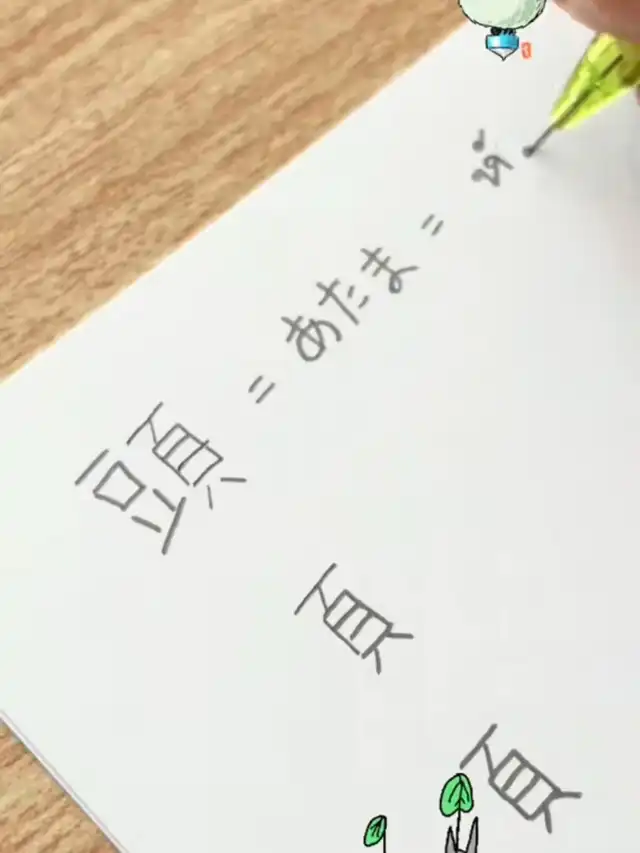 頭 = あたま = หั
頁
頁